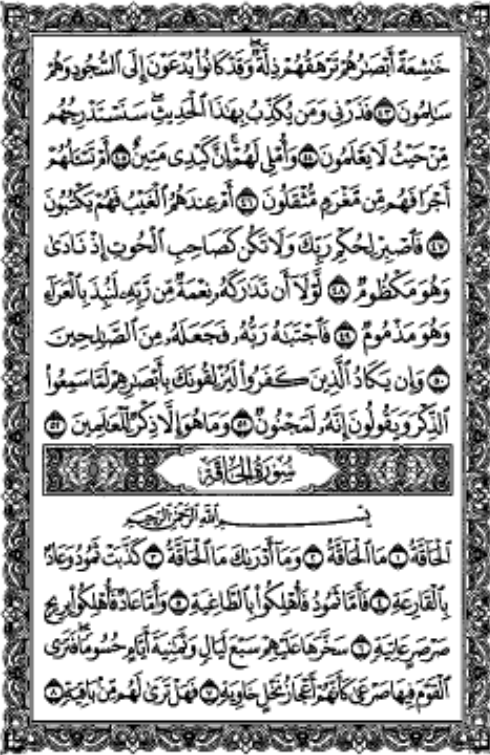 خَٰشِعَةً أَبْصَٰرُهُمْ تَرْهَقُهُمْ ذِلَّةٌ ۖ وَقَدْ كَانُوا۟ يُدْعَوْنَ إِلَى ٱلسُّجُودِ وَهُمْ
سَٰلِمُونَ ٤٣ فَذَرْنِى وَمَن يُكَذِّبُ بِهَٰذَا ٱلْحَدِيثِ ۖ سَنَسْتَدْرِجُهُم
مِّنْ حَيْثُ لَا يَعْلَمُونَ ٤٤ وَأُمْلِى لَهُمْ ۚ إِنَّ كَيْدِى مَتِينٌ ٤٥ أَمْ تَسْـَٔلُهُمْ
أَجْرًا فَهُم مِّن مَّغْرَمٍ مُّثْقَلُونَ ٤٦ أَمْ عِندَهُمُ ٱلْغَيْبُ فَهُمْ يَكْتُبُونَ
٤٧ فَٱصْبِرْ لِحُكْمِ رَبِّكَ وَلَا تَكُن كَصَاحِبِ ٱلْحُوتِ إِذْ نَادَىٰ
وَهُوَ مَكْظُومٌ ٤٨ لَّوْلَآ أَن تَدَٰرَكَهُۥ نِعْمَةٌ مِّن رَّبِّهِۦ لَنُبِذَ بِٱلْعَرَآءِ
وَهُوَ مَذْمُومٌ ٤٩ فَٱجْتَبَٰهُ رَبُّهُۥ فَجَعَلَهُۥ مِنَ ٱلصَّٰلِحِينَ
٥٠ وَإِن يَكَادُ ٱلَّذِينَ كَفَرُوا۟ لَيُزْلِقُونَكَ بِأَبْصَٰرِهِمْ لَمَّا سَمِعُوا۟
ٱلذِّكْرَ وَيَقُولُونَ إِنَّهُۥ لَمَجْنُونٌ ٥١ وَمَا هُوَ إِلَّا ذِكْرٌ لِّلْعَٰلَمِينَ ٥٢
سُورَةُ الحَاقَّةِ
بِسْمِ ٱللَّهِ ٱلرَّحْمَٰنِ ٱلرَّحِيمِ
ٱلْحَآقَّةُ ١ مَا ٱلْحَآقَّةُ ٢ وَمَآ أَدْرَىٰكَ مَا ٱلْحَآقَّةُ ٣ كَذَّبَتْ ثَمُودُ وَعَادٌۢ
بِٱلْقَارِعَةِ ٤ فَأَمَّا ثَمُودُ فَأُهْلِكُوا۟ بِٱلطَّاغِيَةِ ٥ وَأَمَّا عَادٌ فَأُهْلِكُوا۟ بِرِيحٍ
صَرْصَرٍ عَاتِيَةٍ ٦ سَخَّرَهَا عَلَيْهِمْ سَبْعَ لَيَالٍ وَثَمَٰنِيَةَ أَيَّامٍ حُسُومًا فَتَرَى
ٱلْقَوْمَ فِيهَا صَرْعَىٰ كَأَنَّهُمْ أَعْجَازُ نَخْلٍ خَاوِيَةٍ ٧ فَهَلْ تَرَىٰ لَهُم مِّنۢ بَاقِيَةٍ ٨